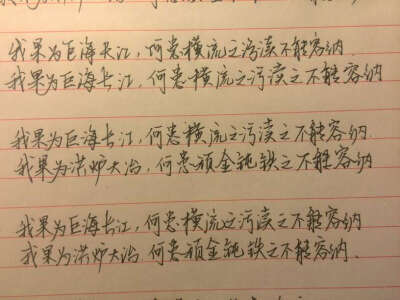 我果为巨海长江，何患横流之污渎不能容纳
我果为巨海长江，何患横流之污渎之不能容纳
我果为巨海长江，何患横流之污渎之不能容纳
我果为洪炉大冶，何患顽金钝铁之不能容纳
我果为巨海长江，何患横流之污渎之不能容纳
我果为洪炉大冶，何患顽金钝铁之不能容纳